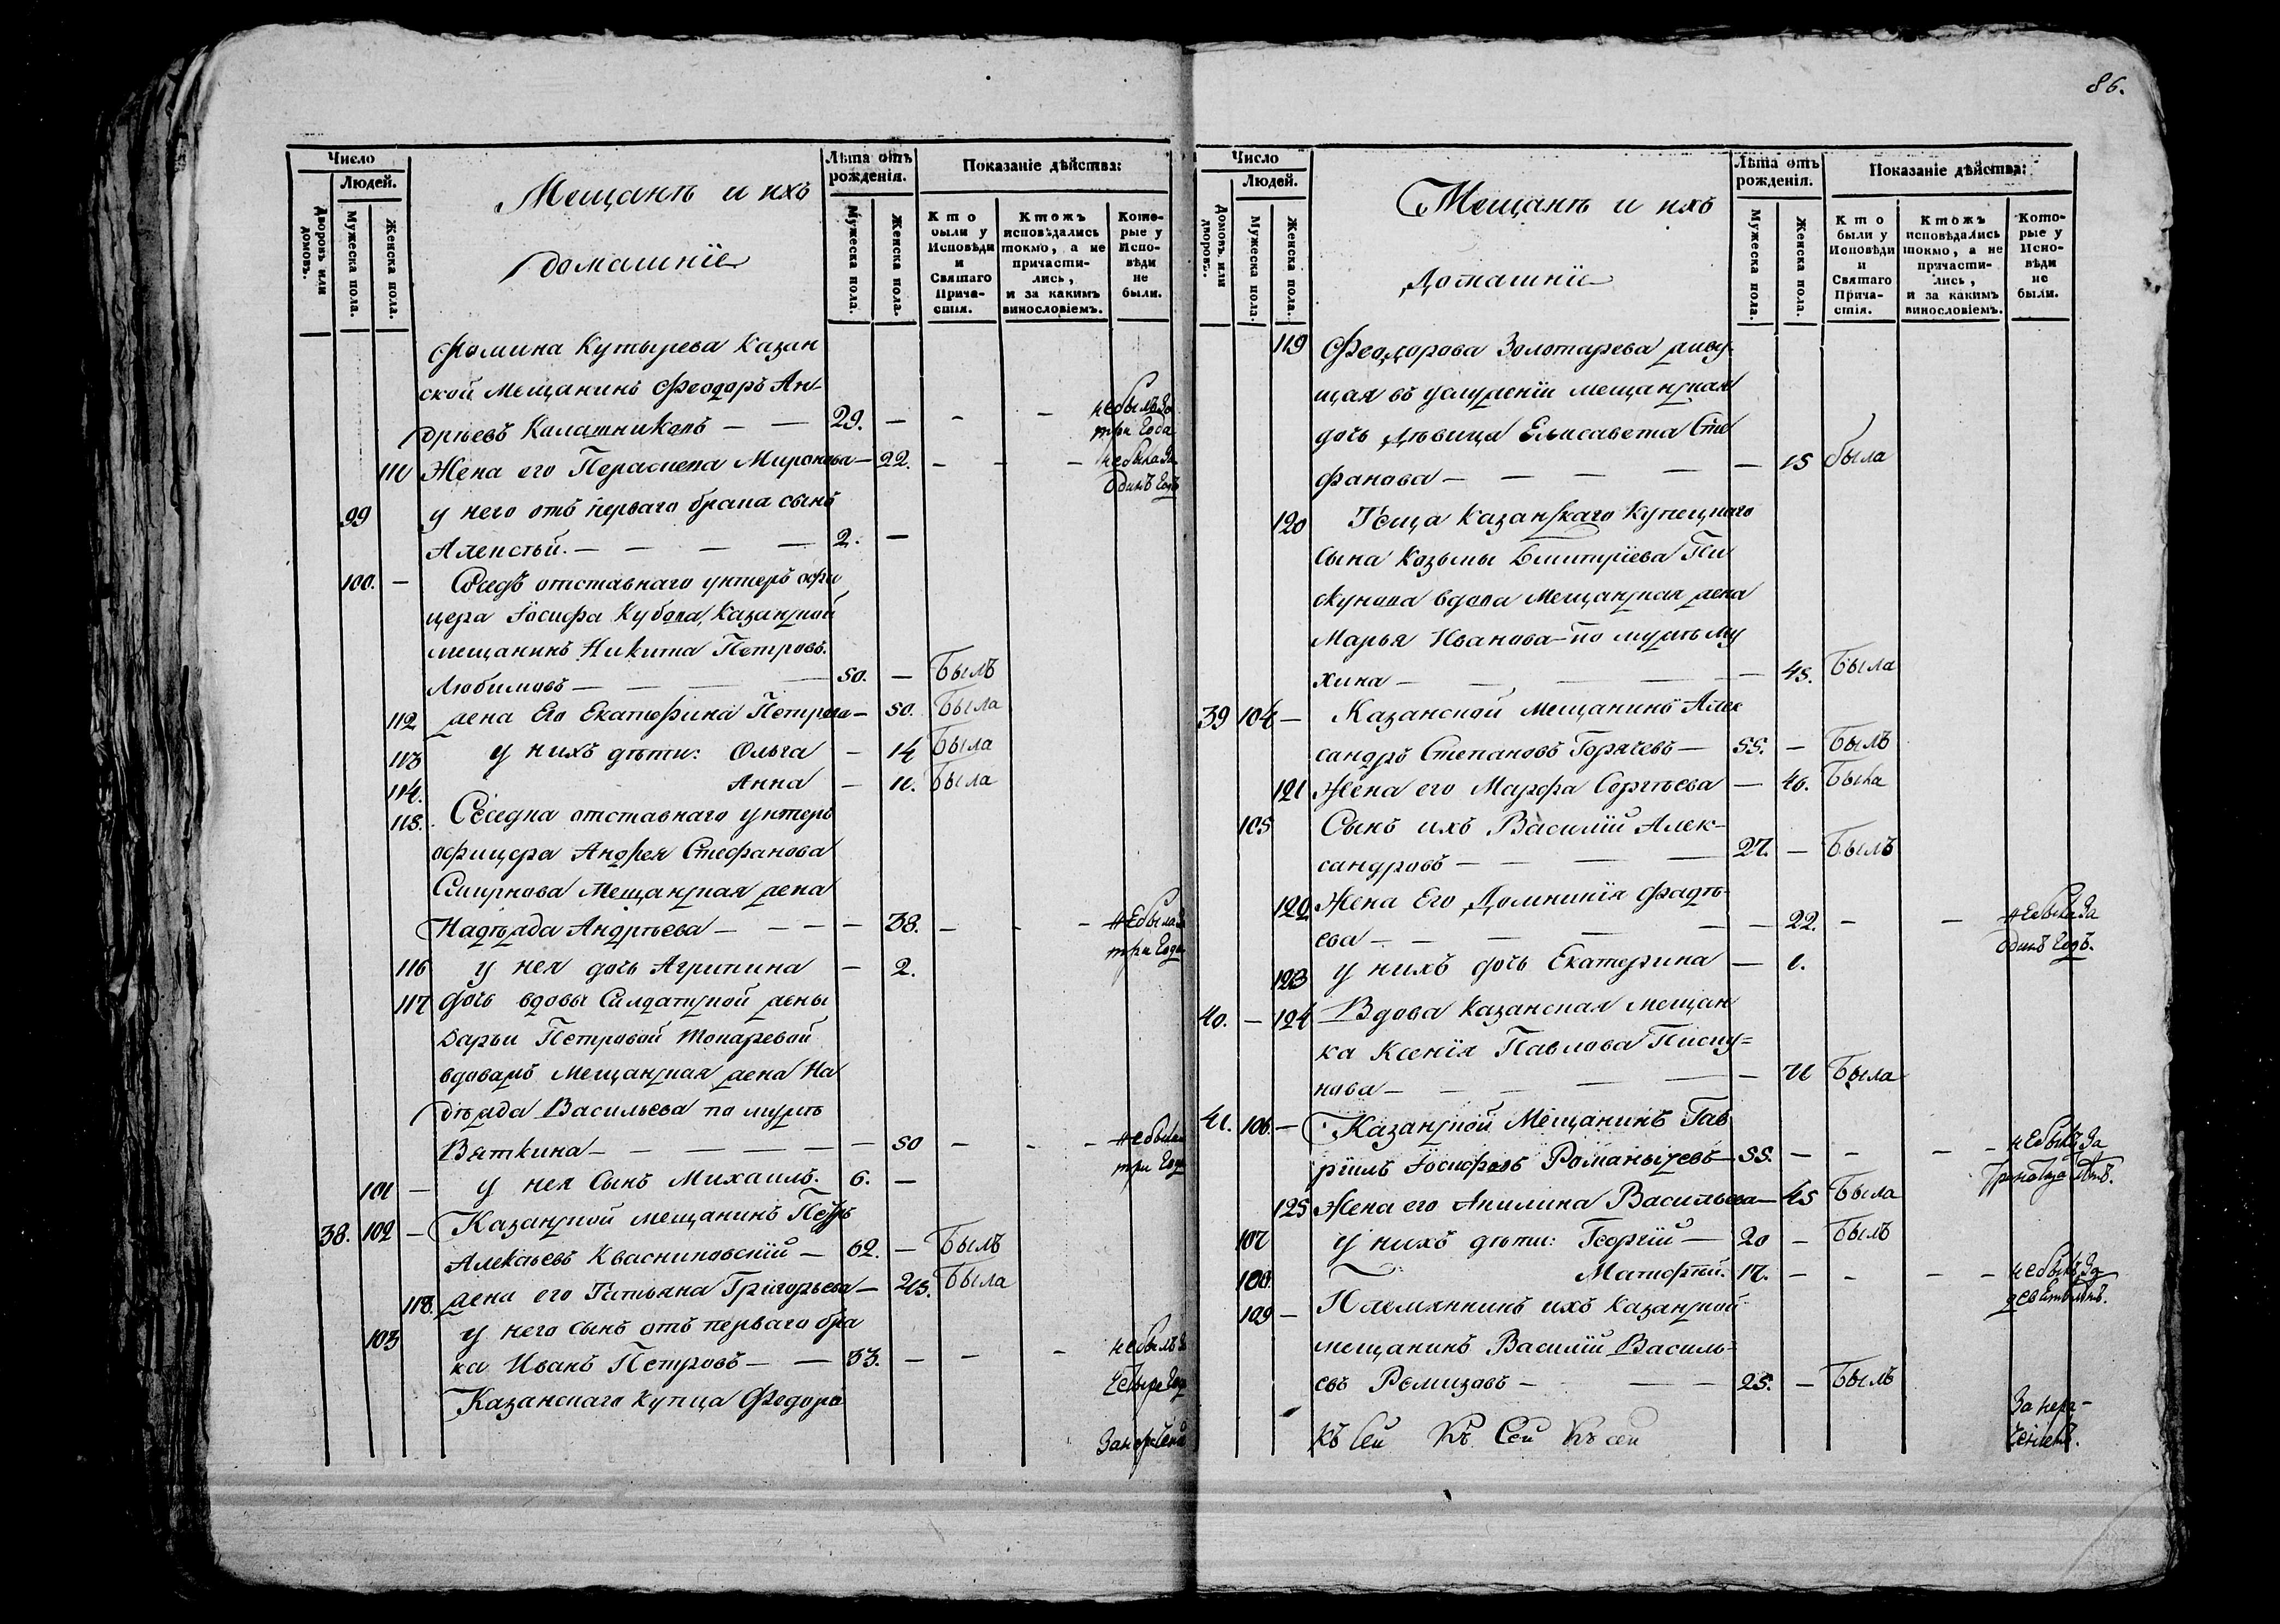 86.
Число
Людей.
Дворовъ или домовъ.
Мужеска пола.
Женска пола.
Мещанъ и ихъ
домашніе
Лѣта отъ рожденія.
Мужеска пола.
Женска пола.
Показаніе дѣйства:
Кто были у Исповѣди и Святаго Причастія.
Ктожъ исповѣдались токмо, а не причастились, и за какимъ винословіемъ.
Которые у Исповѣди не были.
Фомина Кутырева Казан
ской мещанинъ Феодоръ Ан-
дрѣевъ Калашниковъ — — 29. — - — не былъ за три года
111 Жена его Параскева Миронова — 22. - - - не была за одинъ годъ
99 у него отъ перваго брака сынъ
Алексѣй. — — — — 2. —
100. — Сосѣдъ отставнаго унтеръ офи
цера Іосифа Кубова, Казанской
мещанинъ Никита Петровъ.
Любимовъ — — — — 50. — Былъ
112 жена Его Екатерина Петрова — 50. Была
113 у нихъ дѣти: Ольга — 14 Была
114. Анна — 11. Была
115. Сосѣдка отставнаго унтеръ
офицера Андрея Стефанова
Смирнова мещанская жена
Надѣжда Андрѣева — — — — 38. — - - не была за три года
116 у нея дочь Агрипина — 2.
117 дочь вдовы Салдатской жены
Дарьи Петровой Токаревой
вдоваяъ мещанская жена На
дѣжда Васильева по мужѣ
Вяткина — — — — — — 50 — - - не была три года
101 — у нея Сынъ Михаилъ. 6. —
38. 102 — Казанской мещанинъ Петръ
Алексѣевъ Квасниковскій — 62. — Былъ
118. жена его Татьяна Григорьева — 45. Была
103 у него сынъ отъ перваго бра
ка Иванъ Петровъ — — 33. — — - не былъ за четыре года
Казанскаго купца Федора
За нераченіе
Число
Людей.
Домовъ или дворовъ.
Мужеска пола.
Женска пола.
Мещанъ и ихъ
Домашніе
Лѣта отъ рожденія.
Мужеска пола.
Женска пола.
Показаніе дѣйства:
Кто были у Исповѣди и Святаго Причастія.
Ктожъ исповѣдались токмо, а не причастились, и за каким винословіемъ.
Которые у Исповѣди не были.
119 Феодорова Золотарева живу-
щая въ услуженіи мещанская
дочь дѣвица Елисавета Сте
фанова — — — — — 15 была
120 Теща Казанскаго Купецкаго
сына Козьмы Дмитріева Пи
скунова вдова мещанская жена
Марья Иванова по мужѣ Му
хина — — — — — 45. Была
39 104 — Казанской мещанинъ Алек
сандръ Степановъ Горячевъ — 55. — Былъ
121 Жена его Марфа Сергѣева — 46. Была
105 Сынъ ихъ Василій Алек-
сандровъ — — — — 27. — Былъ
122 Жена Его Домникія Фадѣ-
ева — — — — — — 22. — — не была за одинъ годъ.
123 у нихъ дочь Екатерина — 1.
40. — 124 Вдова Казанская мещан
ка Ксенія Павлова Писку=
нова — — — — — 71 Была
41. 106. — Казанской Мещанинъ Гав
ріилъ Іосифовъ Романычевъ — 55. — — — — не былъ за
125 Жена его Акилина Васильева — 45 Была
107 у нихъ дѣти: Георгій — 20 — Былъ
108. Матфей. 17. — — — — не былъ за девять лѣтъ.
109 — Племянникъ ихъ Казанской
мещанинъ Василій Василь=
евъ Ремизовъ — — — 25. — Былъ
За нера-
ченіемъ.
Къ сей Къ Сей Къ сей